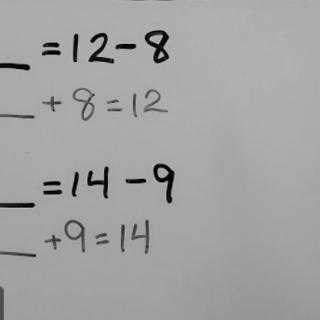 __ = 12 - 8
__ + 8 = 12
__ = 14 - 9
__ + 9 = 14